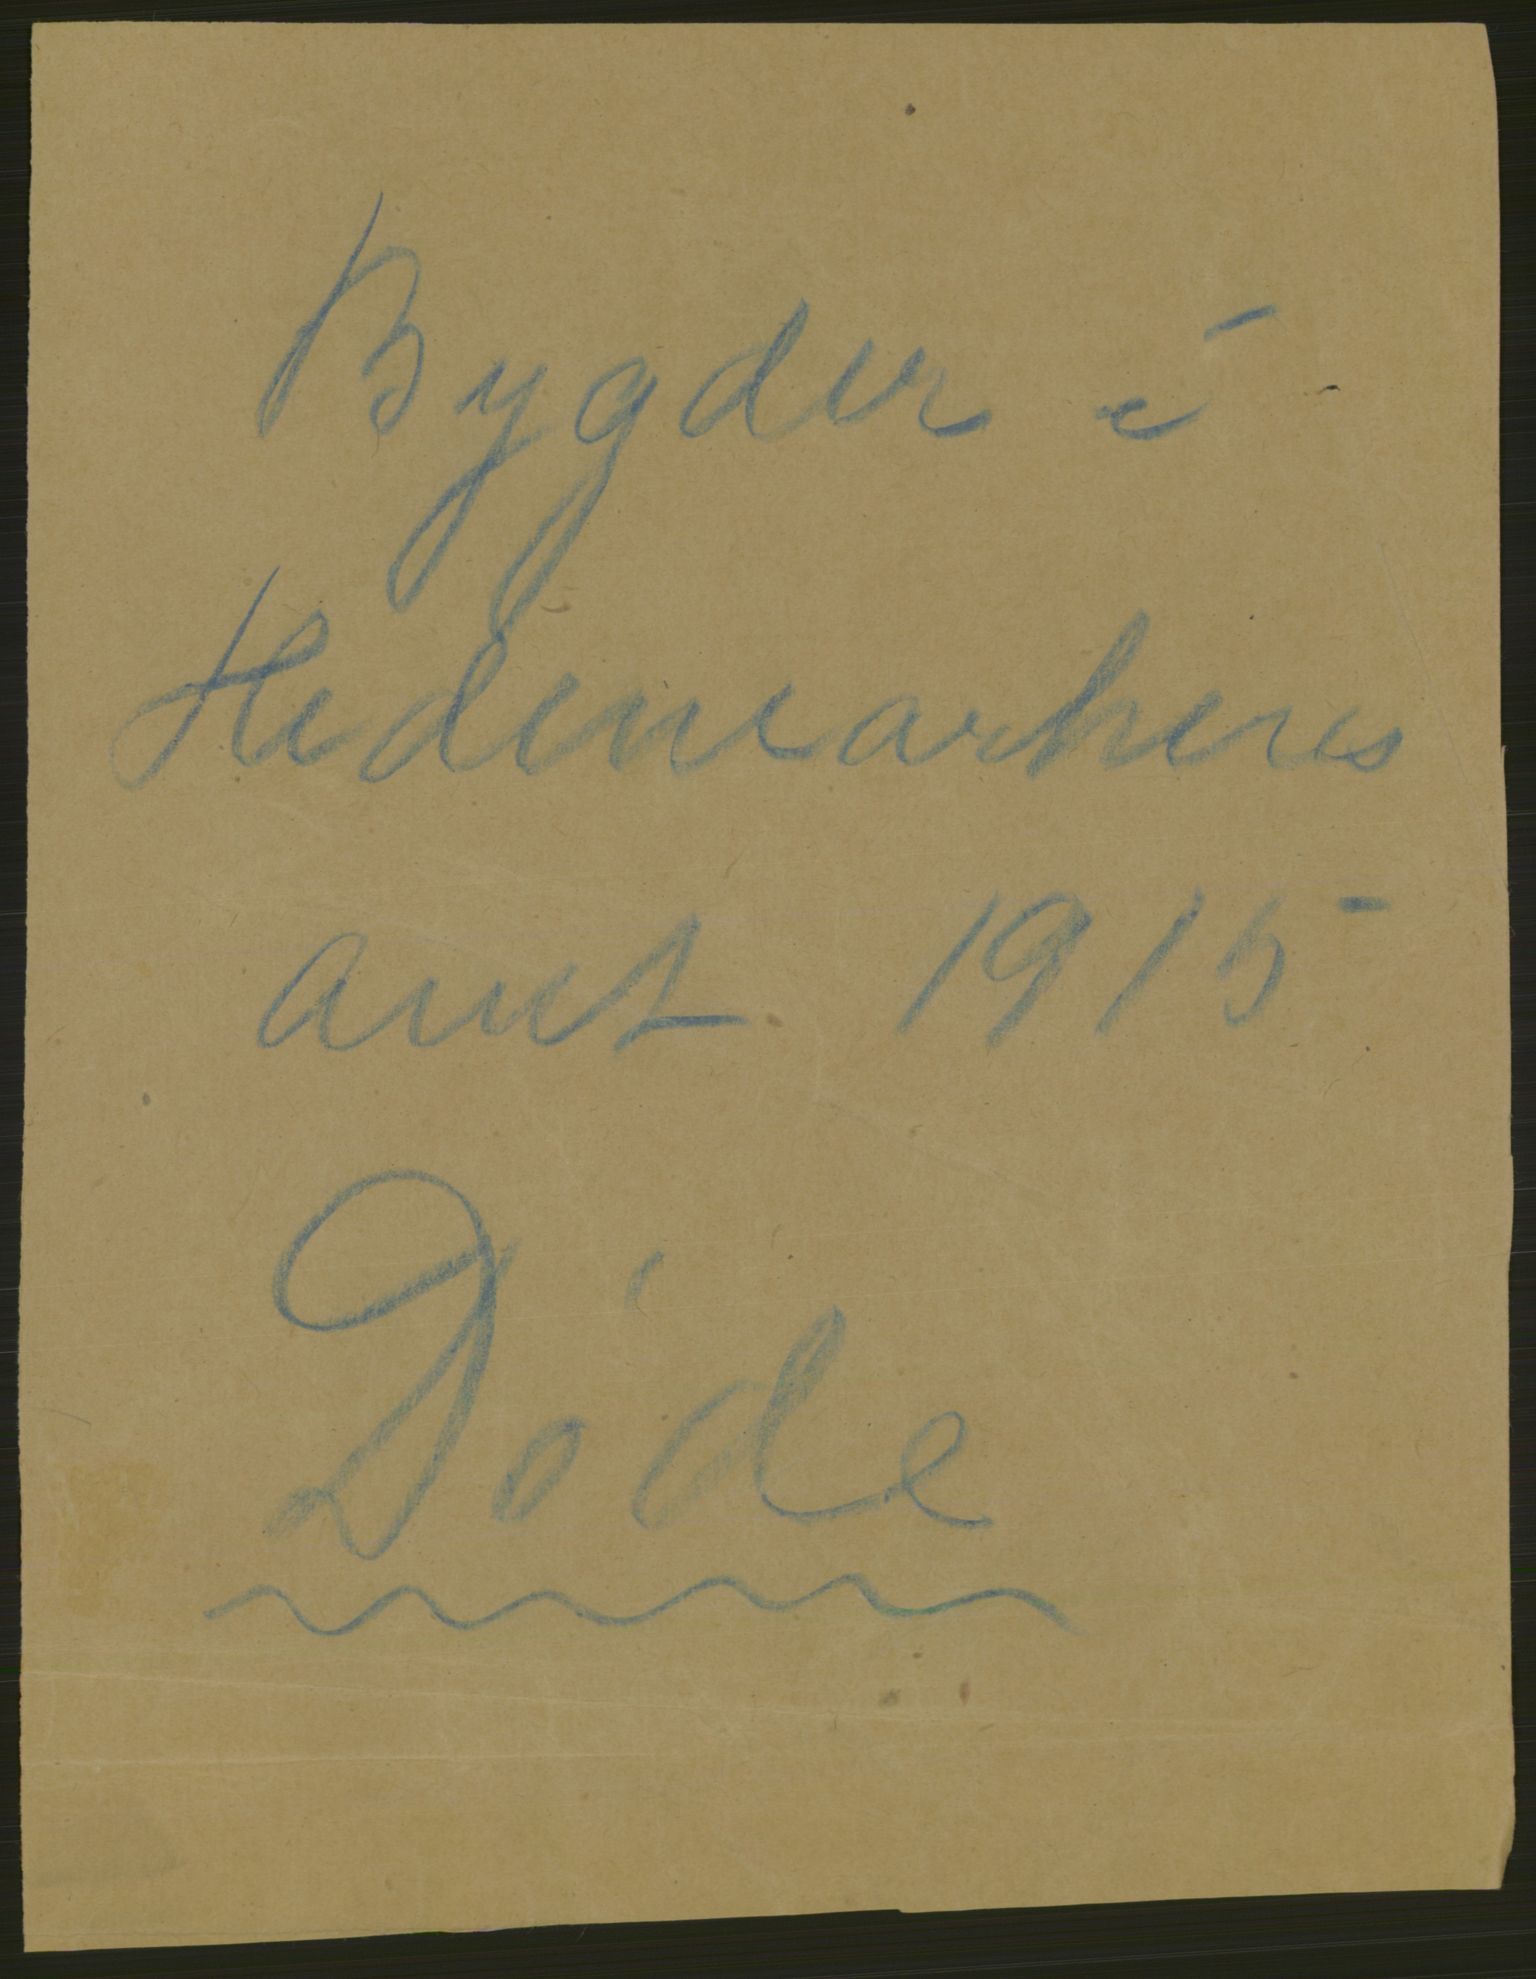 Bygder i
Hedemarkens
amt 1915
Døde